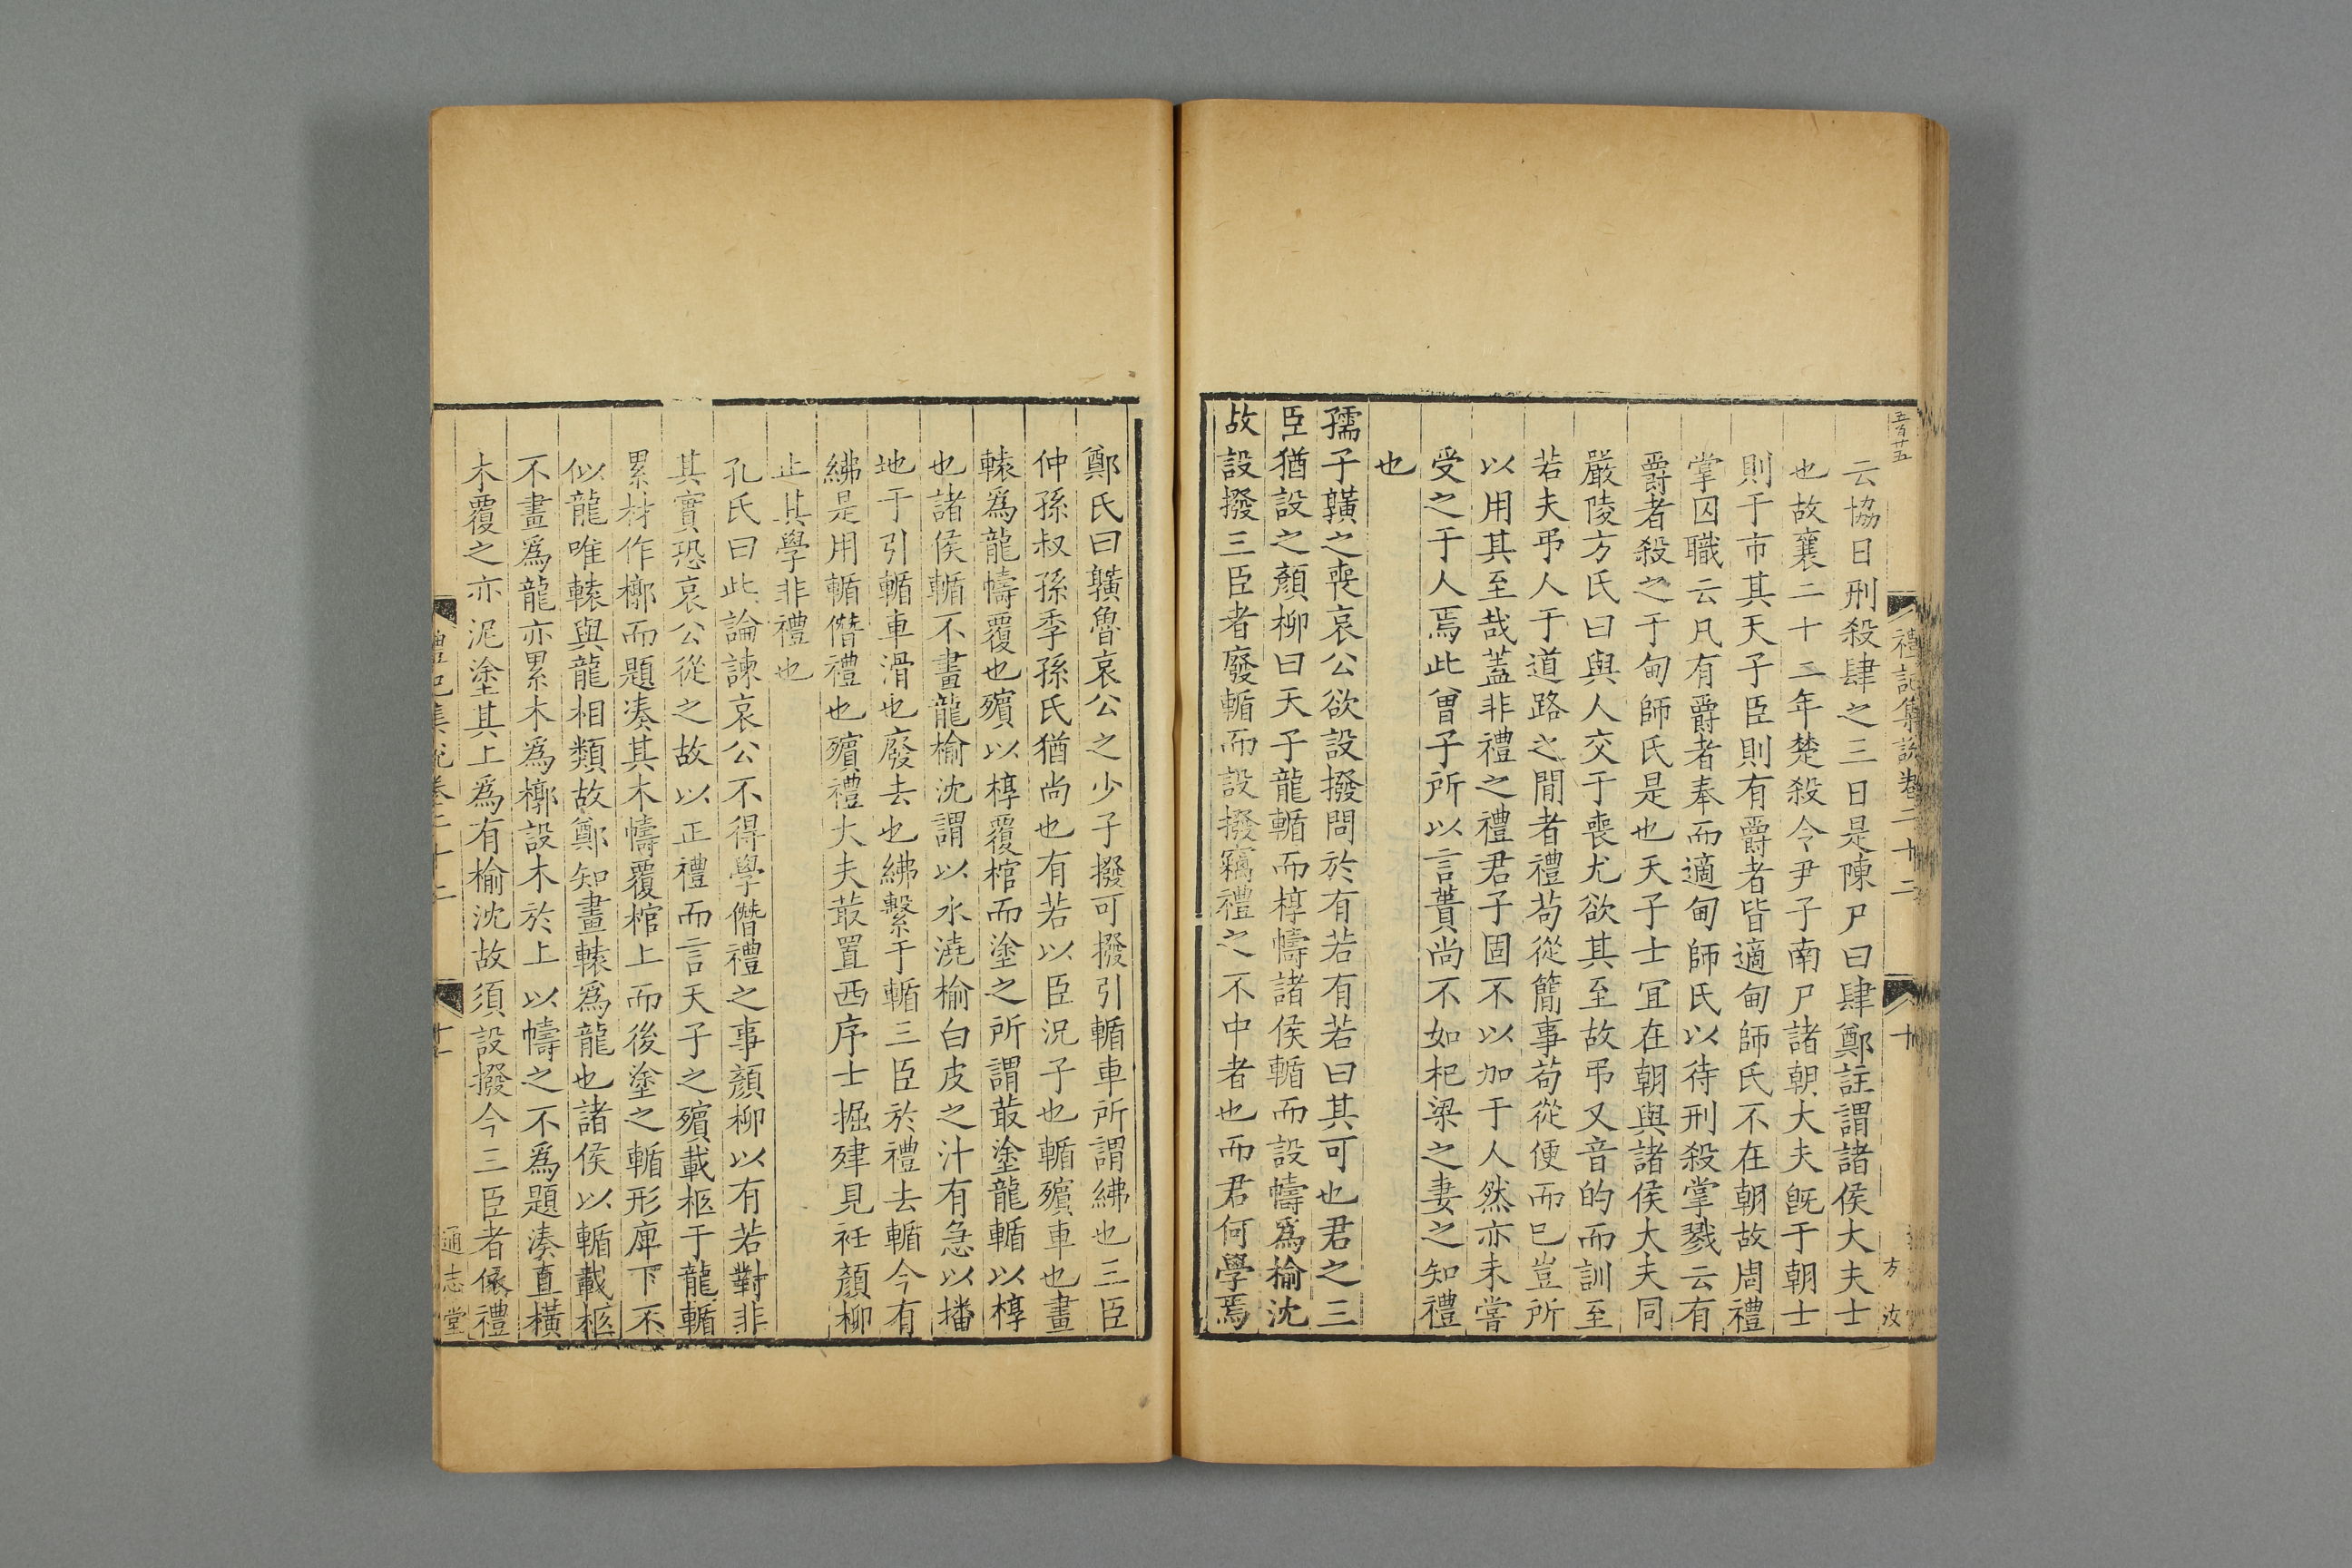 五百廿五
禮記集說卷二十二
十
方
汝
云協日刑殺肆之三日是陳尸曰肆鄭註謂諸侯大夫士
也故襄二十二年楚殺令尹子南尸諸朝大夫旣于朝士
則于市其天子臣則有爵者皆適甸師氏不在朝故周禮
掌囚職云凡有爵者奉而適甸師氏以待刑殺掌戮云有
爵者殺之于甸師氏是也天子士冝在朝與諸侯大夫同
嚴陵方氏曰與人交于喪尤欲其至故弔又音的而訓至
若夫弔人于道路之閒者禮苟從簡事苟從便而已豈所
以用其至哉蓋非禮之禮君子固不以加于人然亦未嘗
受之于人焉此曾子所以言蕢尚不如杞梁之妻之知禮
也
孺子䵃之喪哀公欲設撥問於有若有若曰其可也君之三
臣猶設之顏柳曰天子龍輴而椁幬諸侯輴而設幬爲榆沈
故設撥三臣者廢輴而設撥竊禮之不中者也而君何學焉
鄭氏曰䵃魯哀公之少子撥可撥引輴車所謂紼也三臣
仲孫叔孫季孫氏猶尚也有若以臣況子也輴殯車也畫
轅爲龍幬覆也殯以椁覆棺而塗之所謂菆塗龍輴以椁
也諸侯輴不畫龍榆沈謂以水澆榆白皮之汁有急以播
地于引輴車滑也廢去也紼繫于輴三臣於禮去輴今有
紼是用輴僭禮也殯禮大夫菆置西序士掘肂見衽顏柳
止其學非禮也
孔氏曰此論諫哀公不得學僭禮之事顏柳以有若對非
其實恐哀公從之故以正禮而言天子之殯載柩于龍輴
累材作槨而題湊其木幬覆棺上而後塗之輴形庳下不
似龍唯轅與龍相類故鄭知畫轅爲龍也諸侯以輴載柩
不畫爲龍亦累木爲槨設木於上以幬之不爲題湊直橫
木覆之亦泥塗其上爲有榆沈故須設撥今三臣者依禮
禮記集說卷二十二
十一
通志堂